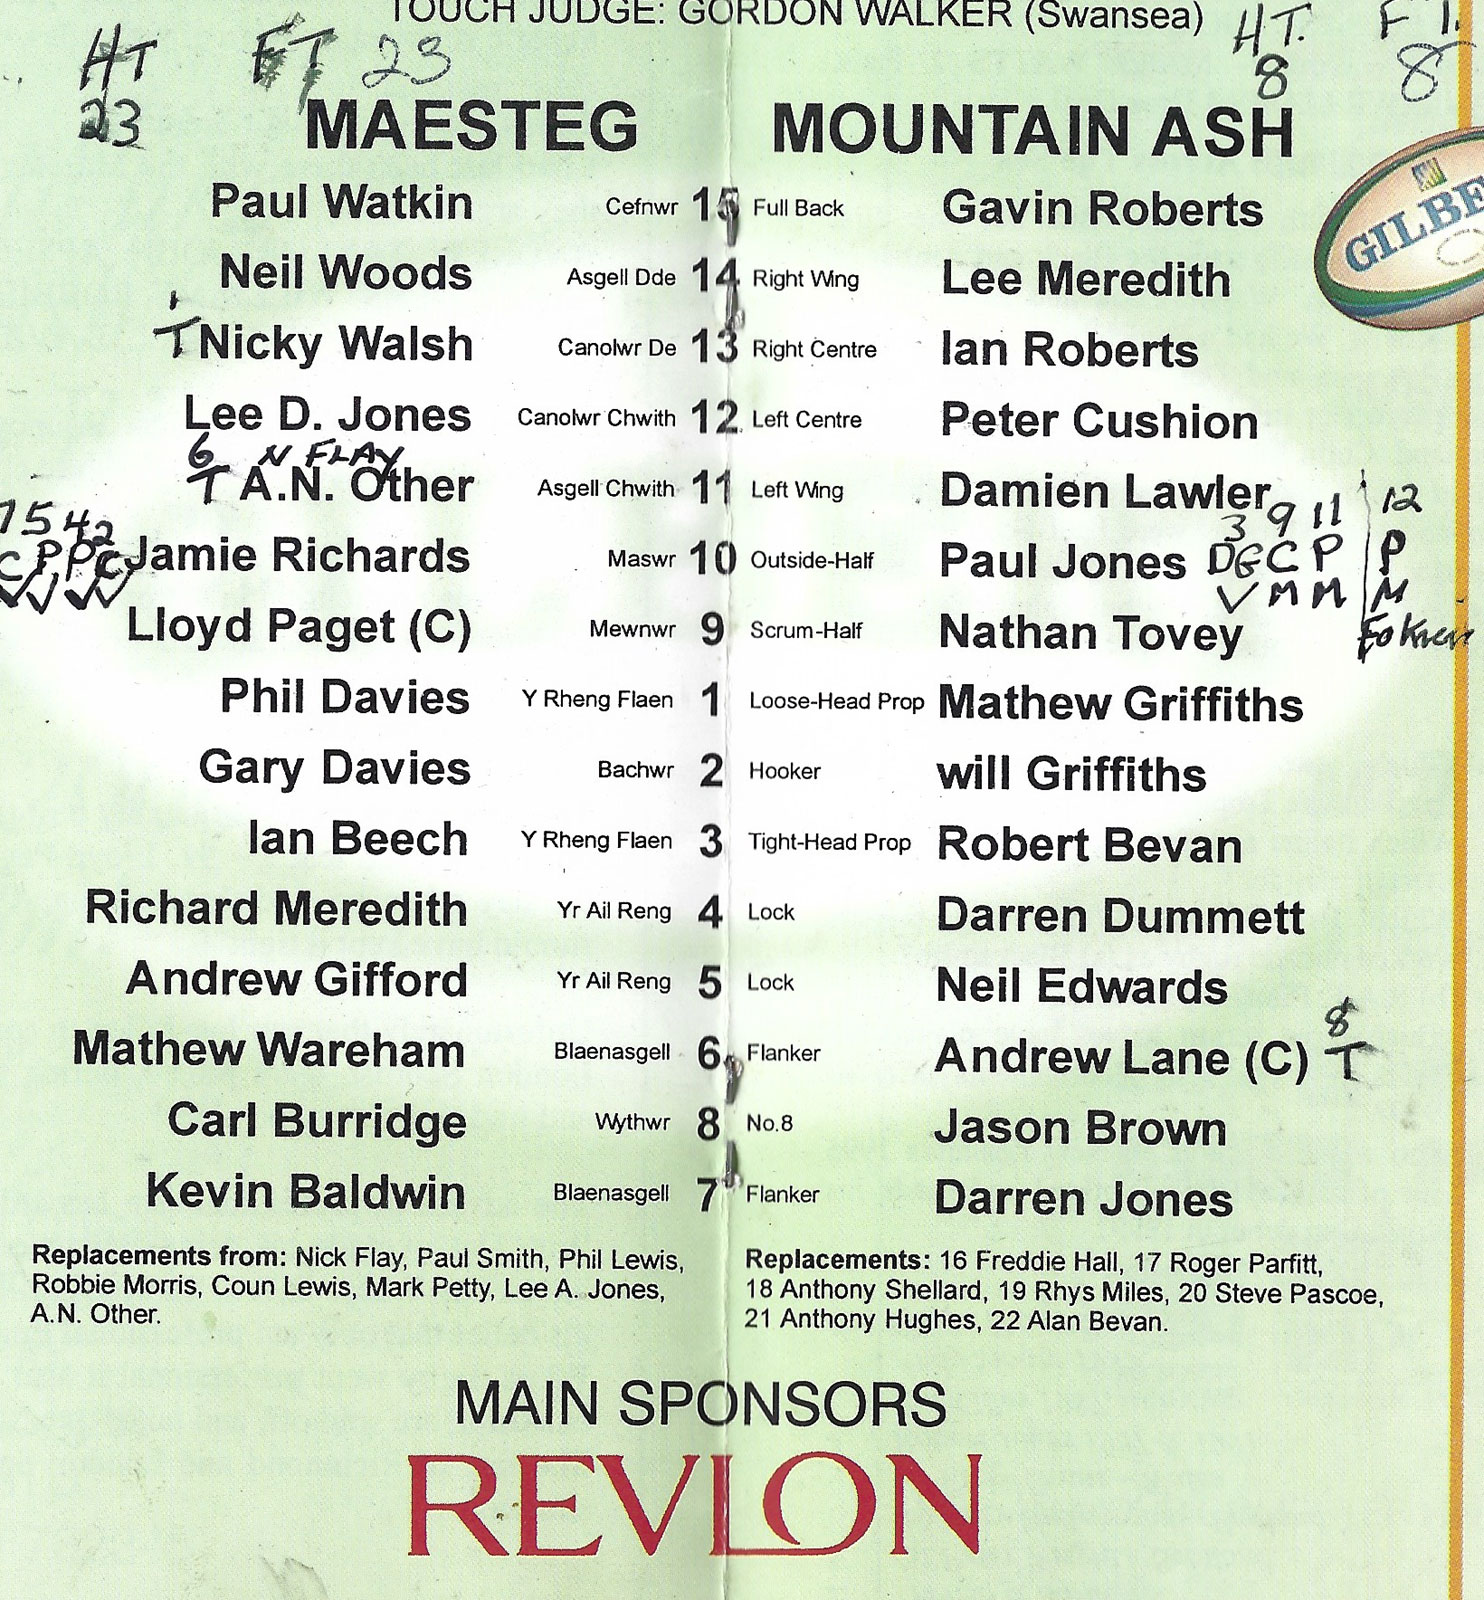 TOUCH JUDGE: GORDON WALKER (Swansea)
HT FT 23 HT. F T.
23 8 8
MAESTEG MOUNTAIN ASH
Paul Watkin Cefnwr 15 Full Back Gavin Roberts
GILBE
Neil Woods Asgell Dde 14 Right Wing Lee Meredith
1
T Nicky Walsh Canolwr De 13 Right Centre Ian Roberts
Lee D. Jones Canolwr Chwith 12 Left Centre Peter Cushion
6 N FLAY
T A.N. Other Asgell Chwith 11 Left Wing Damien Lawler
7 5 4 2 3 9 11 12
C P P C Jamie Richards Maswr 10 Outside-Half Paul Jones DG C P P
✓ ✓ ✓ ✓ ✓ M M M
Lloyd Paget (C) Mewnwr 9 Scrum-Half Nathan Tovey
Phil Davies Y Rheng Flaen 1 Loose-Head Prop Mathew Griffiths
Gary Davies Bachwr 2 Hooker will Griffiths
Ian Beech Y Rheng Flaen 3 Tight-Head Prop Robert Bevan
Richard Meredith Yr Ail Reng 4 Lock Darren Dummett
Andrew Gifford Yr Ail Reng 5 Lock Neil Edwards
8
Mathew Wareham Blaenasgell 6 Flanker Andrew Lane (C) T
Carl Burridge Wythwr 8 No.8 Jason Brown
Kevin Baldwin Blaenasgell 7 Flanker Darren Jones
Replacements from: Nick Flay, Paul Smith, Phil Lewis,
Robbie Morris, Coun Lewis, Mark Petty, Lee A. Jones,
A.N. Other.
Replacements: 16 Freddie Hall, 17 Roger Parfitt,
18 Anthony Shellard, 19 Rhys Miles, 20 Steve Pascoe,
21 Anthony Hughes, 22 Alan Bevan.
MAIN SPONSORS
REVLON